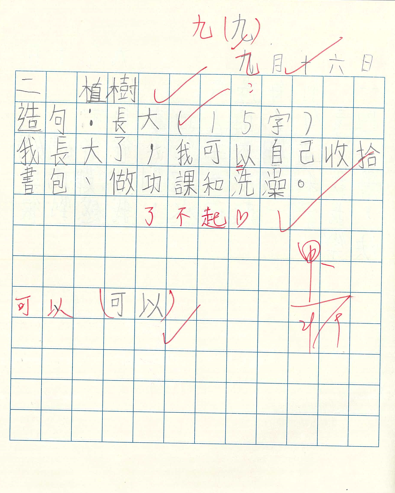 九(九)
九月十六日
二 植樹
造句:長大(15字)
我長大了,我可以自己收拾
書包、做功課和洗澡。
了不起
甲
可以(可以)